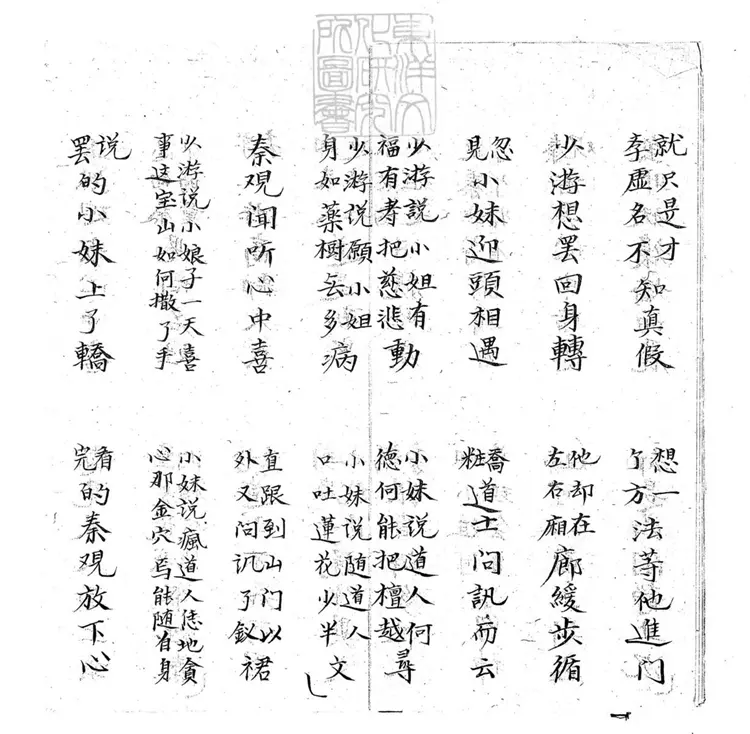 東洋文化研究所圖書
就只是才李虚名不知真假
想一了方法等他進门
少游想罢回身轉
他却在左右廂廊緩步循
忽見小妹迎頭相遇
喬粧道士问訊而云
少游説小姐有福有寿把慈悲動
小妹说道人何德何能把檀越尋
少游说願小姐身如藥樹无多病
小妹说随道人口吐蓮花少半文
秦观闻听心中喜
直跟到山门以外又问讯了釵裙
少游说小娘子一天喜事这宝山如何撒了手
小妹说瘋道人恁地貪心那金穴焉能随自身
说罢的小妹上了轎
看完的秦观放下心